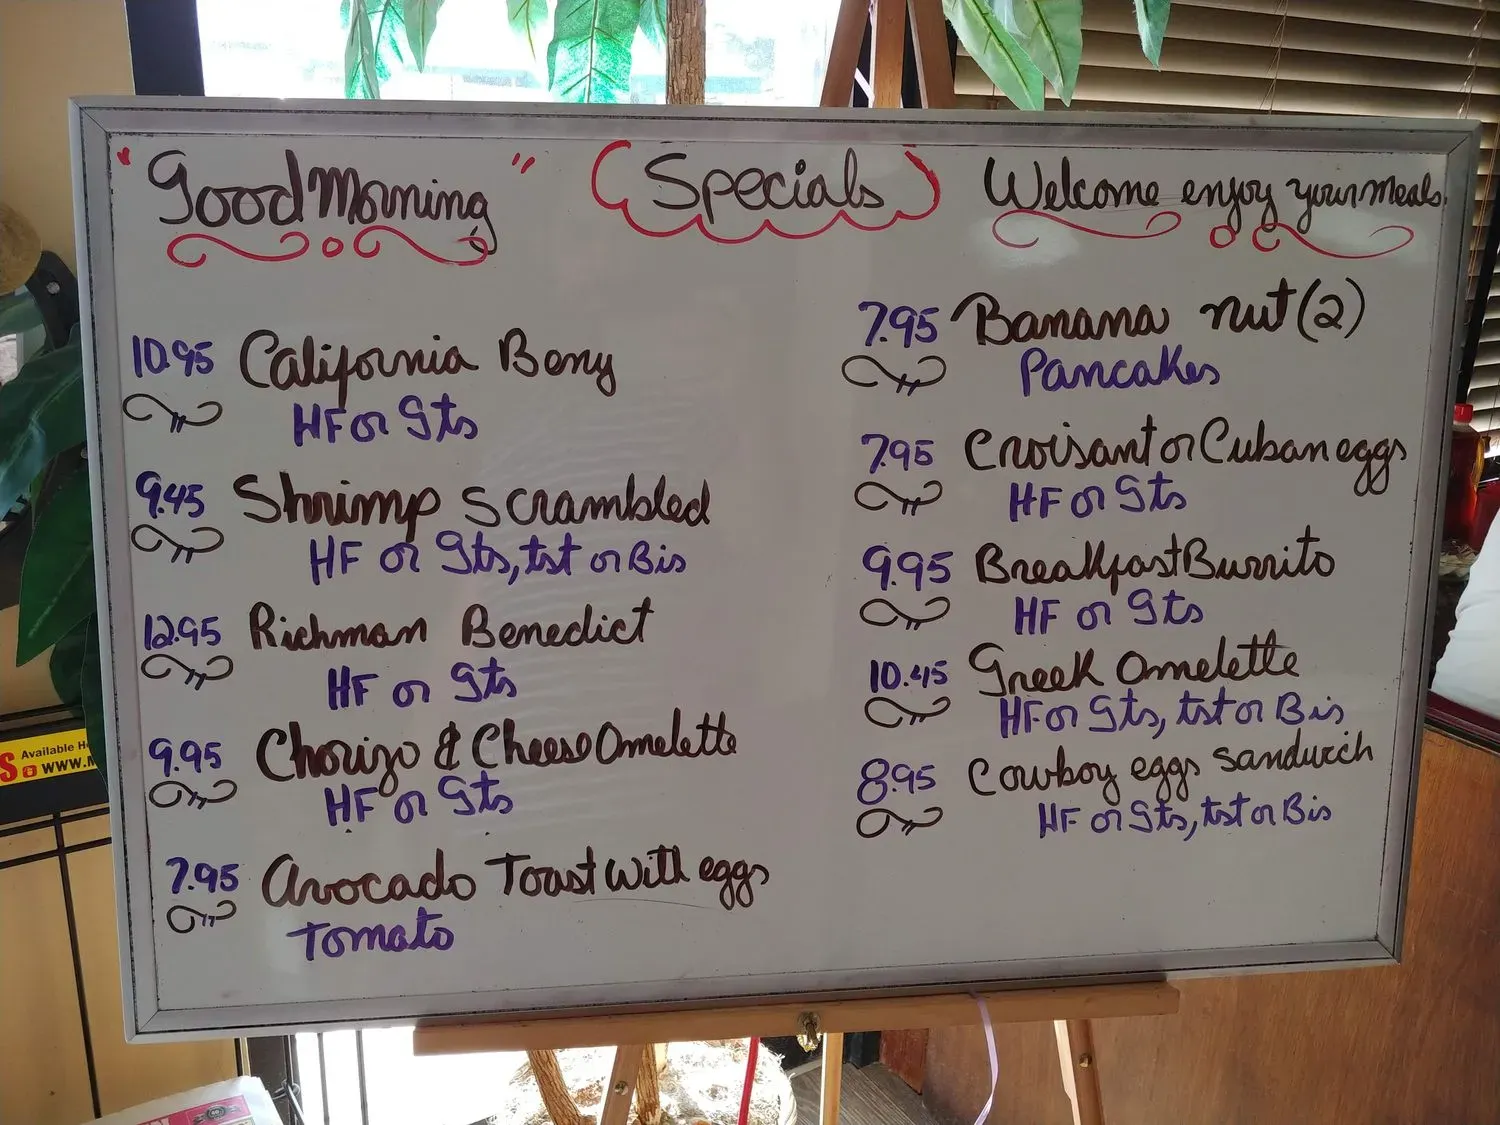 "Good Morning" Specials Welcome enjoy your meals.
10.95 California Beny
HF or Gts
9.45 Shrimp Scrambled
HF or Gts, tst or Bis
12.95 Richman Benedict
HF or Gts
9.95 Chorizo & Cheese Omelette
HF or Gts
7.95 Avocado Toast with eggs
Tomato
7.95 Banana nut (2)
Pancakes
7.95 Croisant or Cuban eggs
HF or Gts
9.95 Breakfast Burrito
HF or Gts
10.45 Greek Omelette
HF or Gts, tst or Bis
8.95 Cowboy eggs sandwich
HF or Gts, tst or Bis
S Available
WWW.